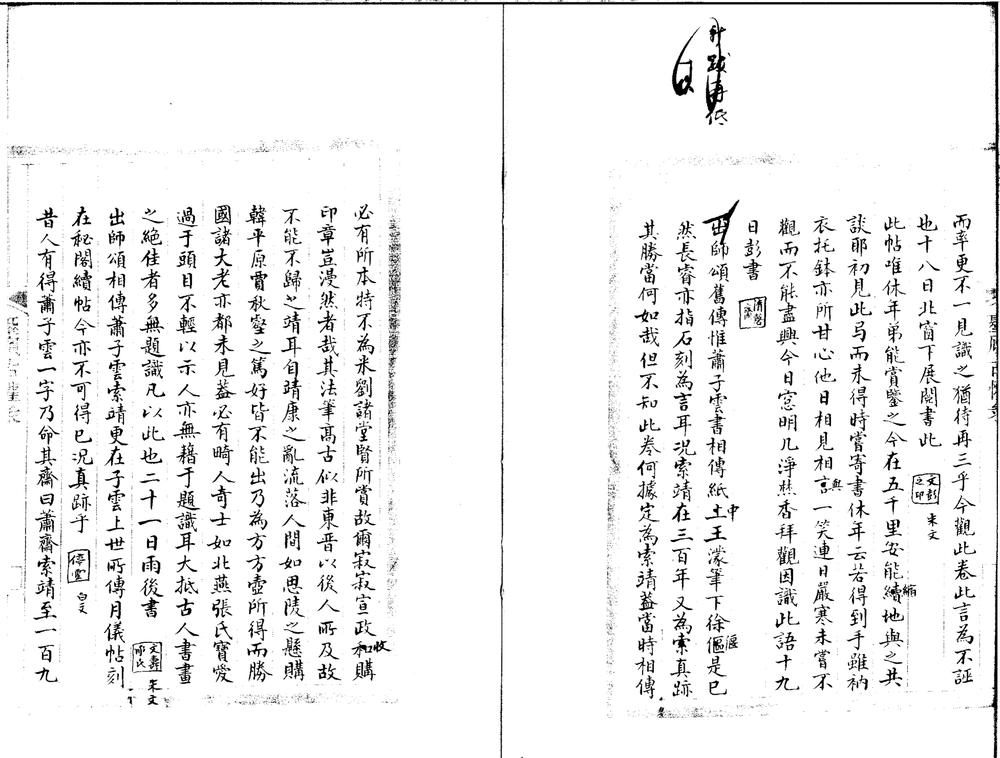 升跋再低
而率更不一見識之猶待再三乎今觀此卷此言為不誣
也十八日北窗下展閱書此
文彭之印
朱文
此帖唯休年弟能賞鑒之今在五千里安能續地與之共
縮
談耶初見此局而未得時嘗寄書休年云若得到手雖衲
衣托鉢亦所甘心他日相見相言一笑連日嚴寒未嘗不
與
觀而不能盡興今日窓明几淨焚香拜觀因識此語十九
日彭書
出師頌舊傳惟蕭子雲書相傳紙土王濛筆下徐偃是已
中
偃
然長睿亦指石刻為言耳况索靖在三百年又為索真跡
其勝當何如哉但不知此卷何據定為索靖葢當時相傳
必有所本特不為米劉諸堂賢所賞故爾寂寂宣政和購
收
印章豈漫然者哉其法筆高古似非東晋以後人所及故
不能不歸之靖耳自靖康之亂流落人間如思陵之懸購
韓平原賈秋壑之篤好皆不能出乃為方方壺所得而勝
國諸大老亦都未見葢必有畸人奇士如北燕張氏寶愛
過于頭目不輕以示人亦無藉于題識耳大抵古人書畫
之絶佳者多無題識凡以此也二十一日雨後書
文壽印氏
朱文
出師頌相傳蕭子雲索靖更在子雲上世所傳月儀帖刻
在秘閣續帖今亦不可得已况真跡乎
停雲
白文
昔人有得蕭子雲一字乃命其齋曰蕭齋索靖至一百九